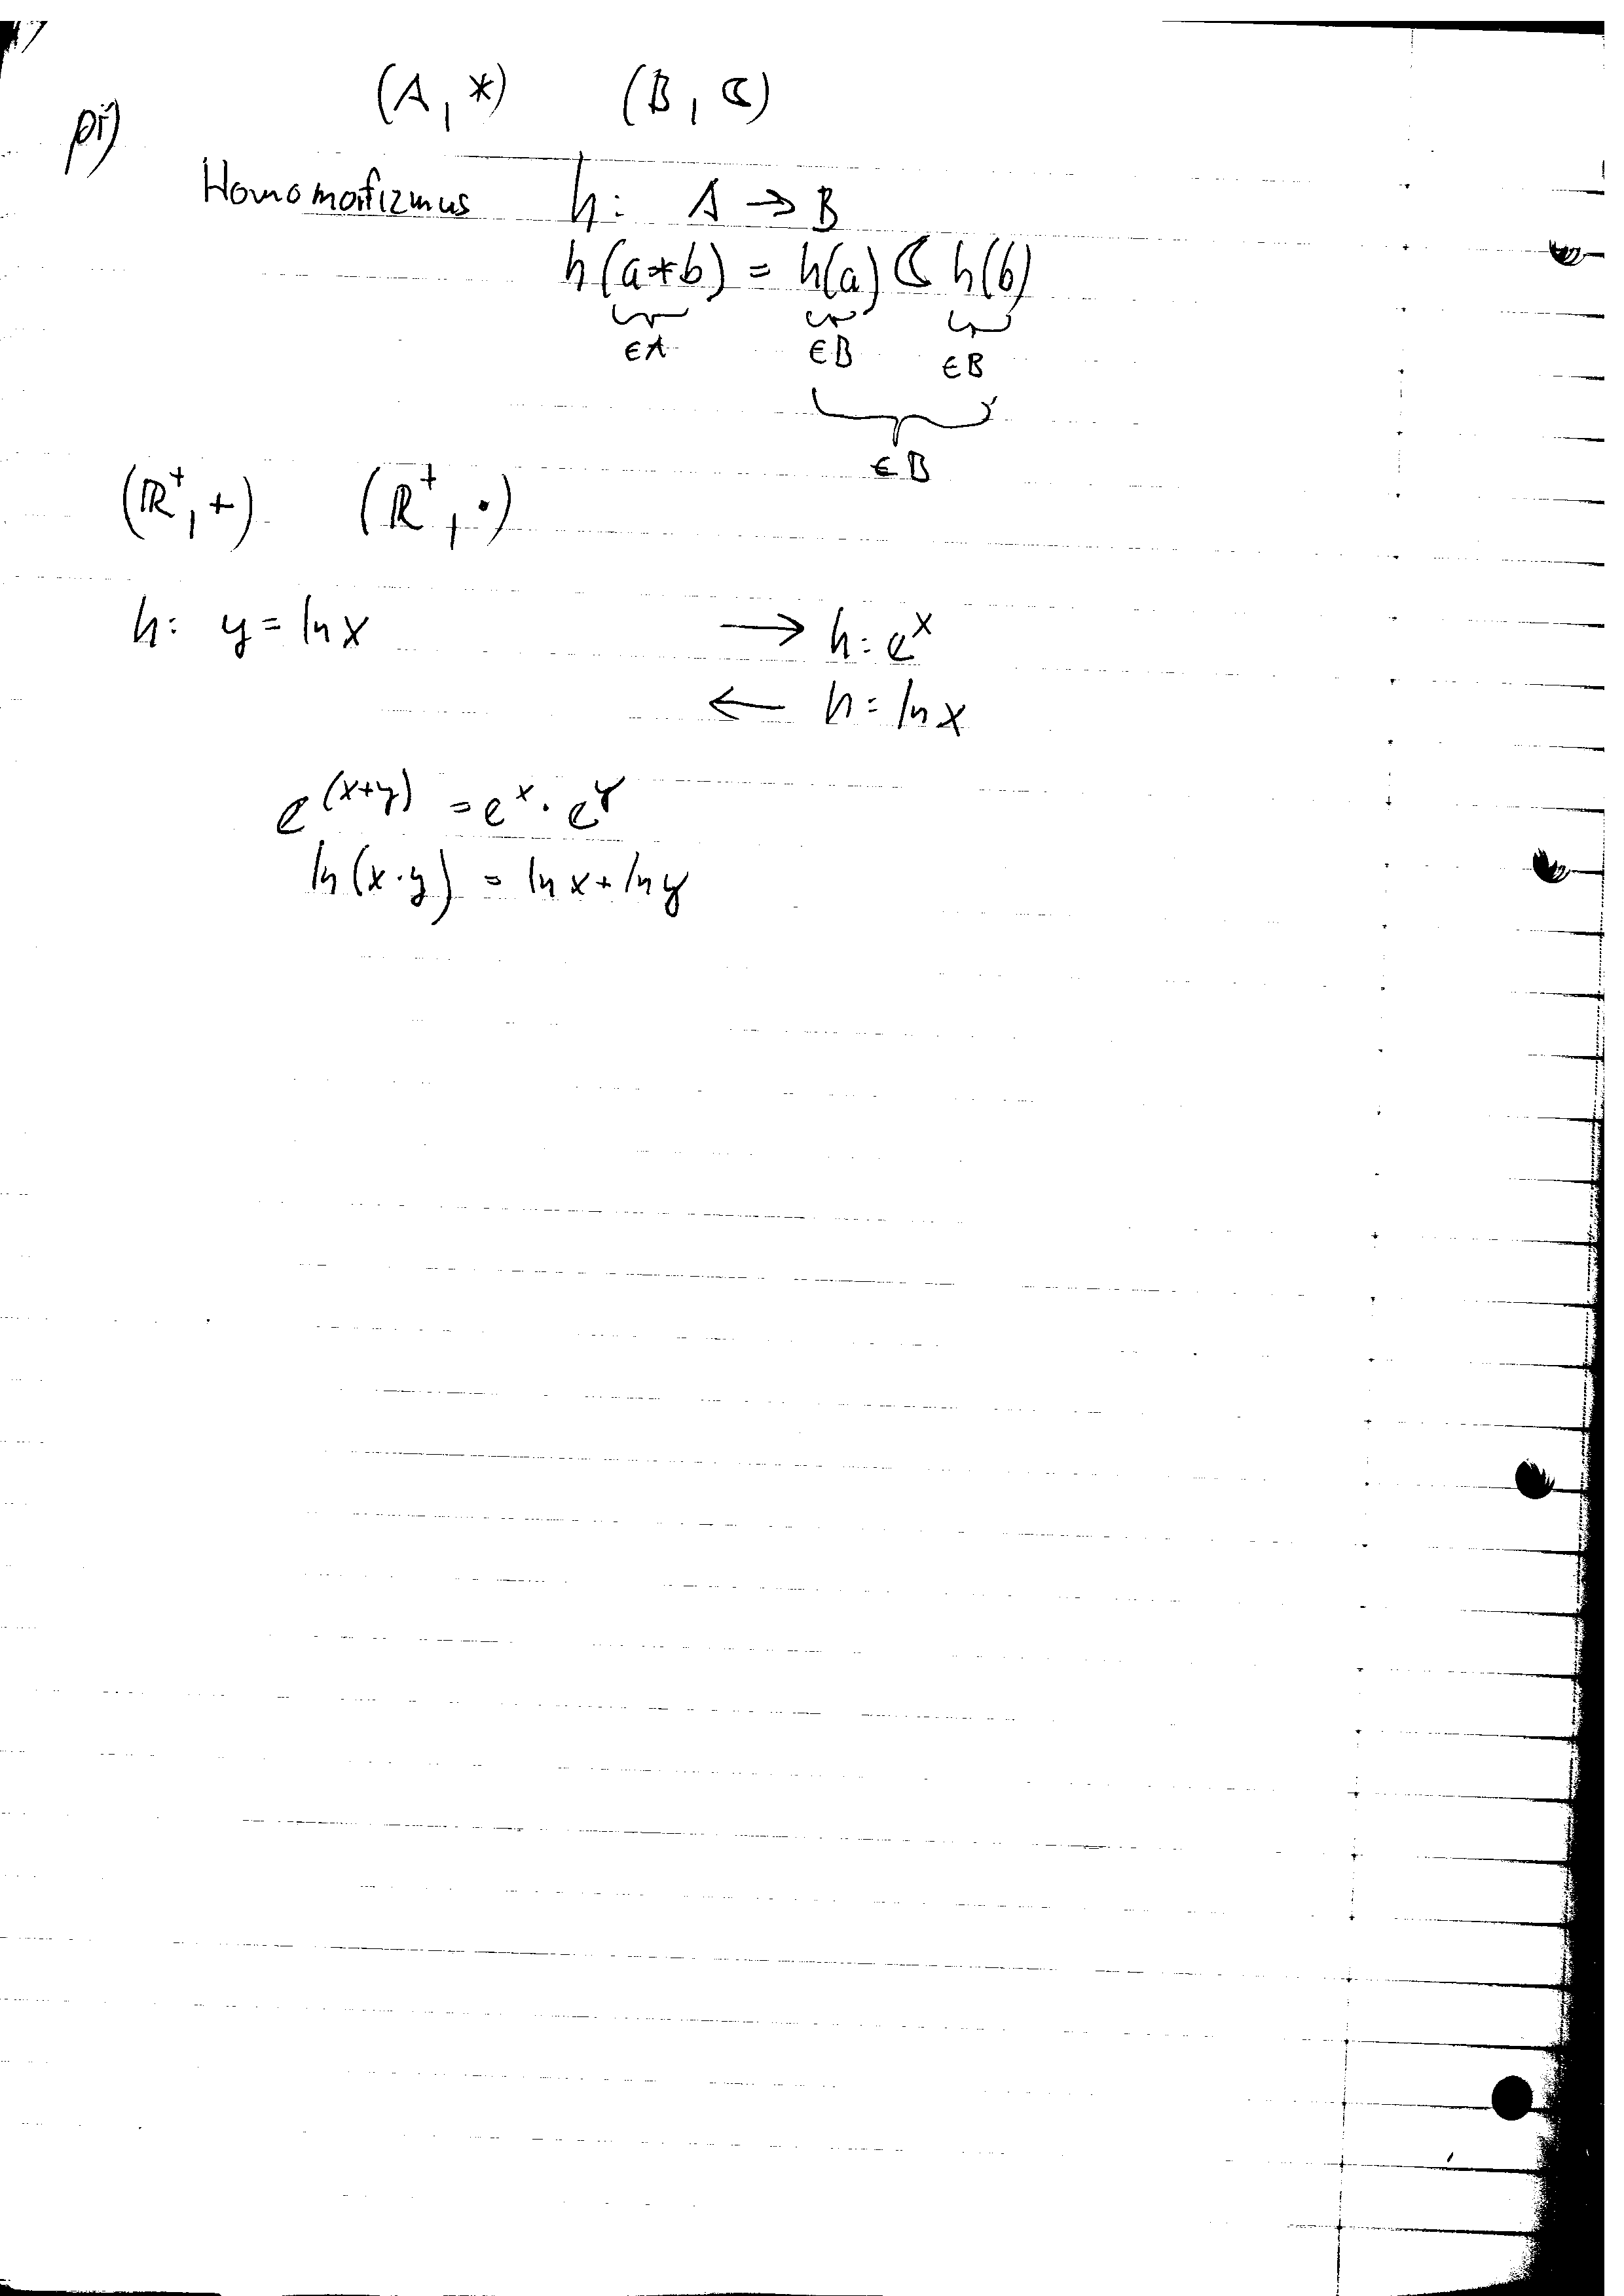 (A, *) (B, ⊂)
př)
Homomorfizmus h: A → B
h(a*b) = h(a) ⊂ h(b)
∈A ∈B ∈B
∈B
(ℝ⁺, +) (ℝ⁺, ·)
h: y = ln x → h: eˣ
← h = ln x
e^(x+y) = eˣ · eʸ
ln(x·y) = ln x + ln y